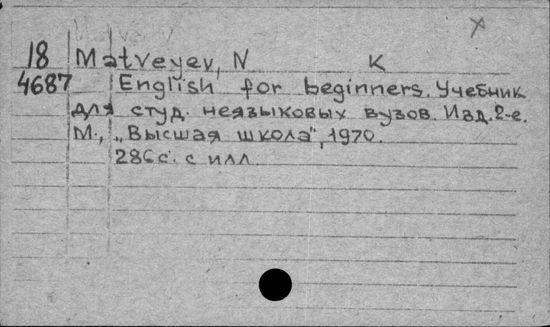 18 Matveyev, N K
4687 English for beginners. Учебник
для студ. неязыковых вузов. Изд. 2-е.
М., „Высшая школа", 1970.
286с. с илл.